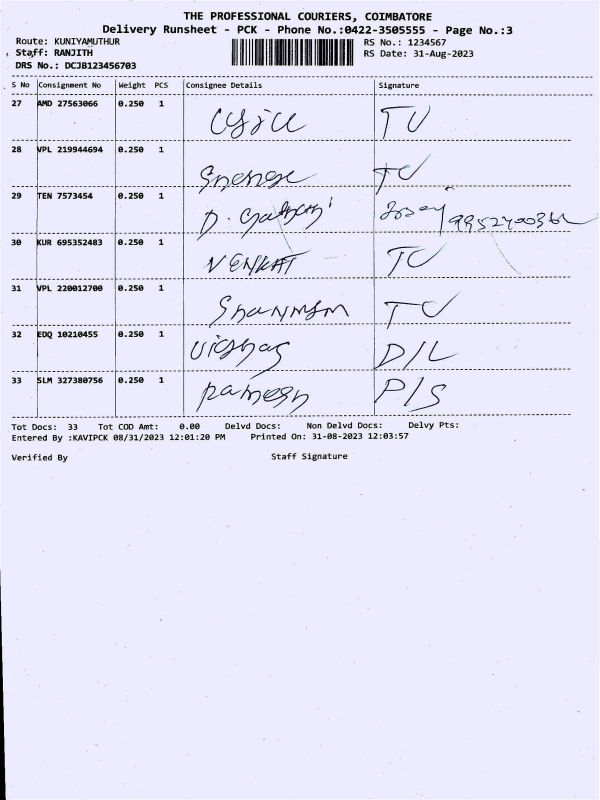 THE PROFESSIONAL COURIERS, COIMBATORE
Delivery Runsheet - PCK - Phone No.:0422-3505555 - Page No.:3
Route: KUNIYAMUTHUR RS No.: 1234567
Staff: RANJITH RS Date: 31-Aug-2023
DRS No.: DCJB123456703
S No Consignment No Weight PCS Consignee Details Signature
27 AMD 27563066 0.250 1 TU
28 VPL 219944694 0.250 1 TU
29 TEN 7573454 0.250 1 D.
30 KUR 695352483 0.250 1 VENKAT TU
31 VPL 220012700 0.250 1 TU
32 EDQ 10210455 0.250 1 D/L
33 SLM 327380756 0.250 1 Ramesh P/S
Tot Docs: 33 Tot COD Amt: 0.00 Delvd Docs: Non Delvd Docs: Delvy Pts:
Entered By :KAVIPCK 08/31/2023 12:01:20 PM Printed On: 31-08-2023 12:03:57
Verified By Staff Signature